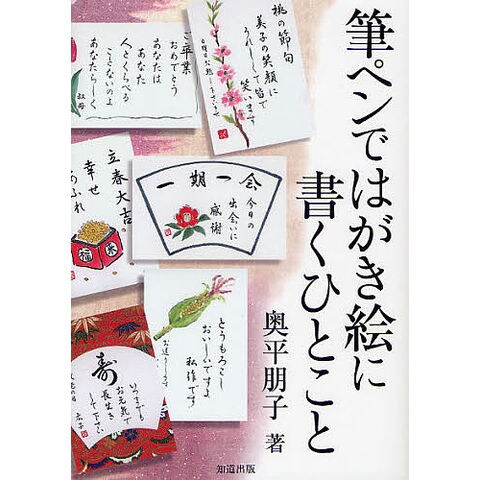 筆ペンではがき絵に
書くひとこと
奥平朋子 著
知道出版
桃の節句
美子の笑顔に
うれしくて皆で
笑います
ご卒業
おめでとう
あなたは
あなた
人とくらべる
ことないのよ
あなたらしく
叔母
一期一会
今日の
出会いに
感謝
立春大吉の
幸せ
あふれ
福
とうもろこし
おいしいですよ
私作です
お送りします
寿
いつまでも
お元気で
長生き
して下さい